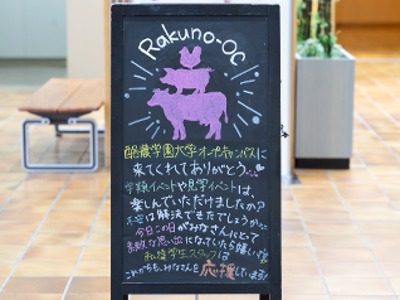 Rakuno-OC
酪農学園大学オープンキャンパスに
来てくれてありがとう
学類イベントや見学イベントは、
楽しんでいただけましたか?
不安は解決できたでしょうか
今日この日がみなさんにとって
素敵な思い出になっていたら嬉しい
私達学生スタッフは
これからも、みなさんを応援しています!